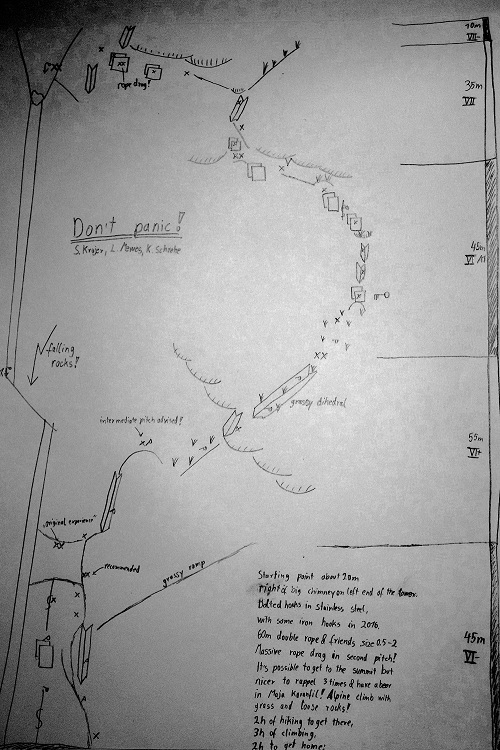 10m
VII-
rope drag!
35m
VII
Don't panic!
S. Krajer, L. Memes, K. Schrabe
45m
VI
falling
rocks!
grassy dihedral
intermediate pitch advised!
55m
VI+
"original experience"
recommended
grassy ramp
Starting point about 20m
right of big chimney on left end of the tower.
Bolted hooks in stainless steel,
with some iron hooks in 2016.
60m double rope & friends size 0.5-2
Massive rope drag on second pitch!
It's possible to get to the summit but
nicer to rappel 3 times & have a beer
in Maja Karanfil! Alpine climb with
grass and loose rocks!
45m
VI-
2h of hiking to get there,
3h of climbing,
2h to get home;